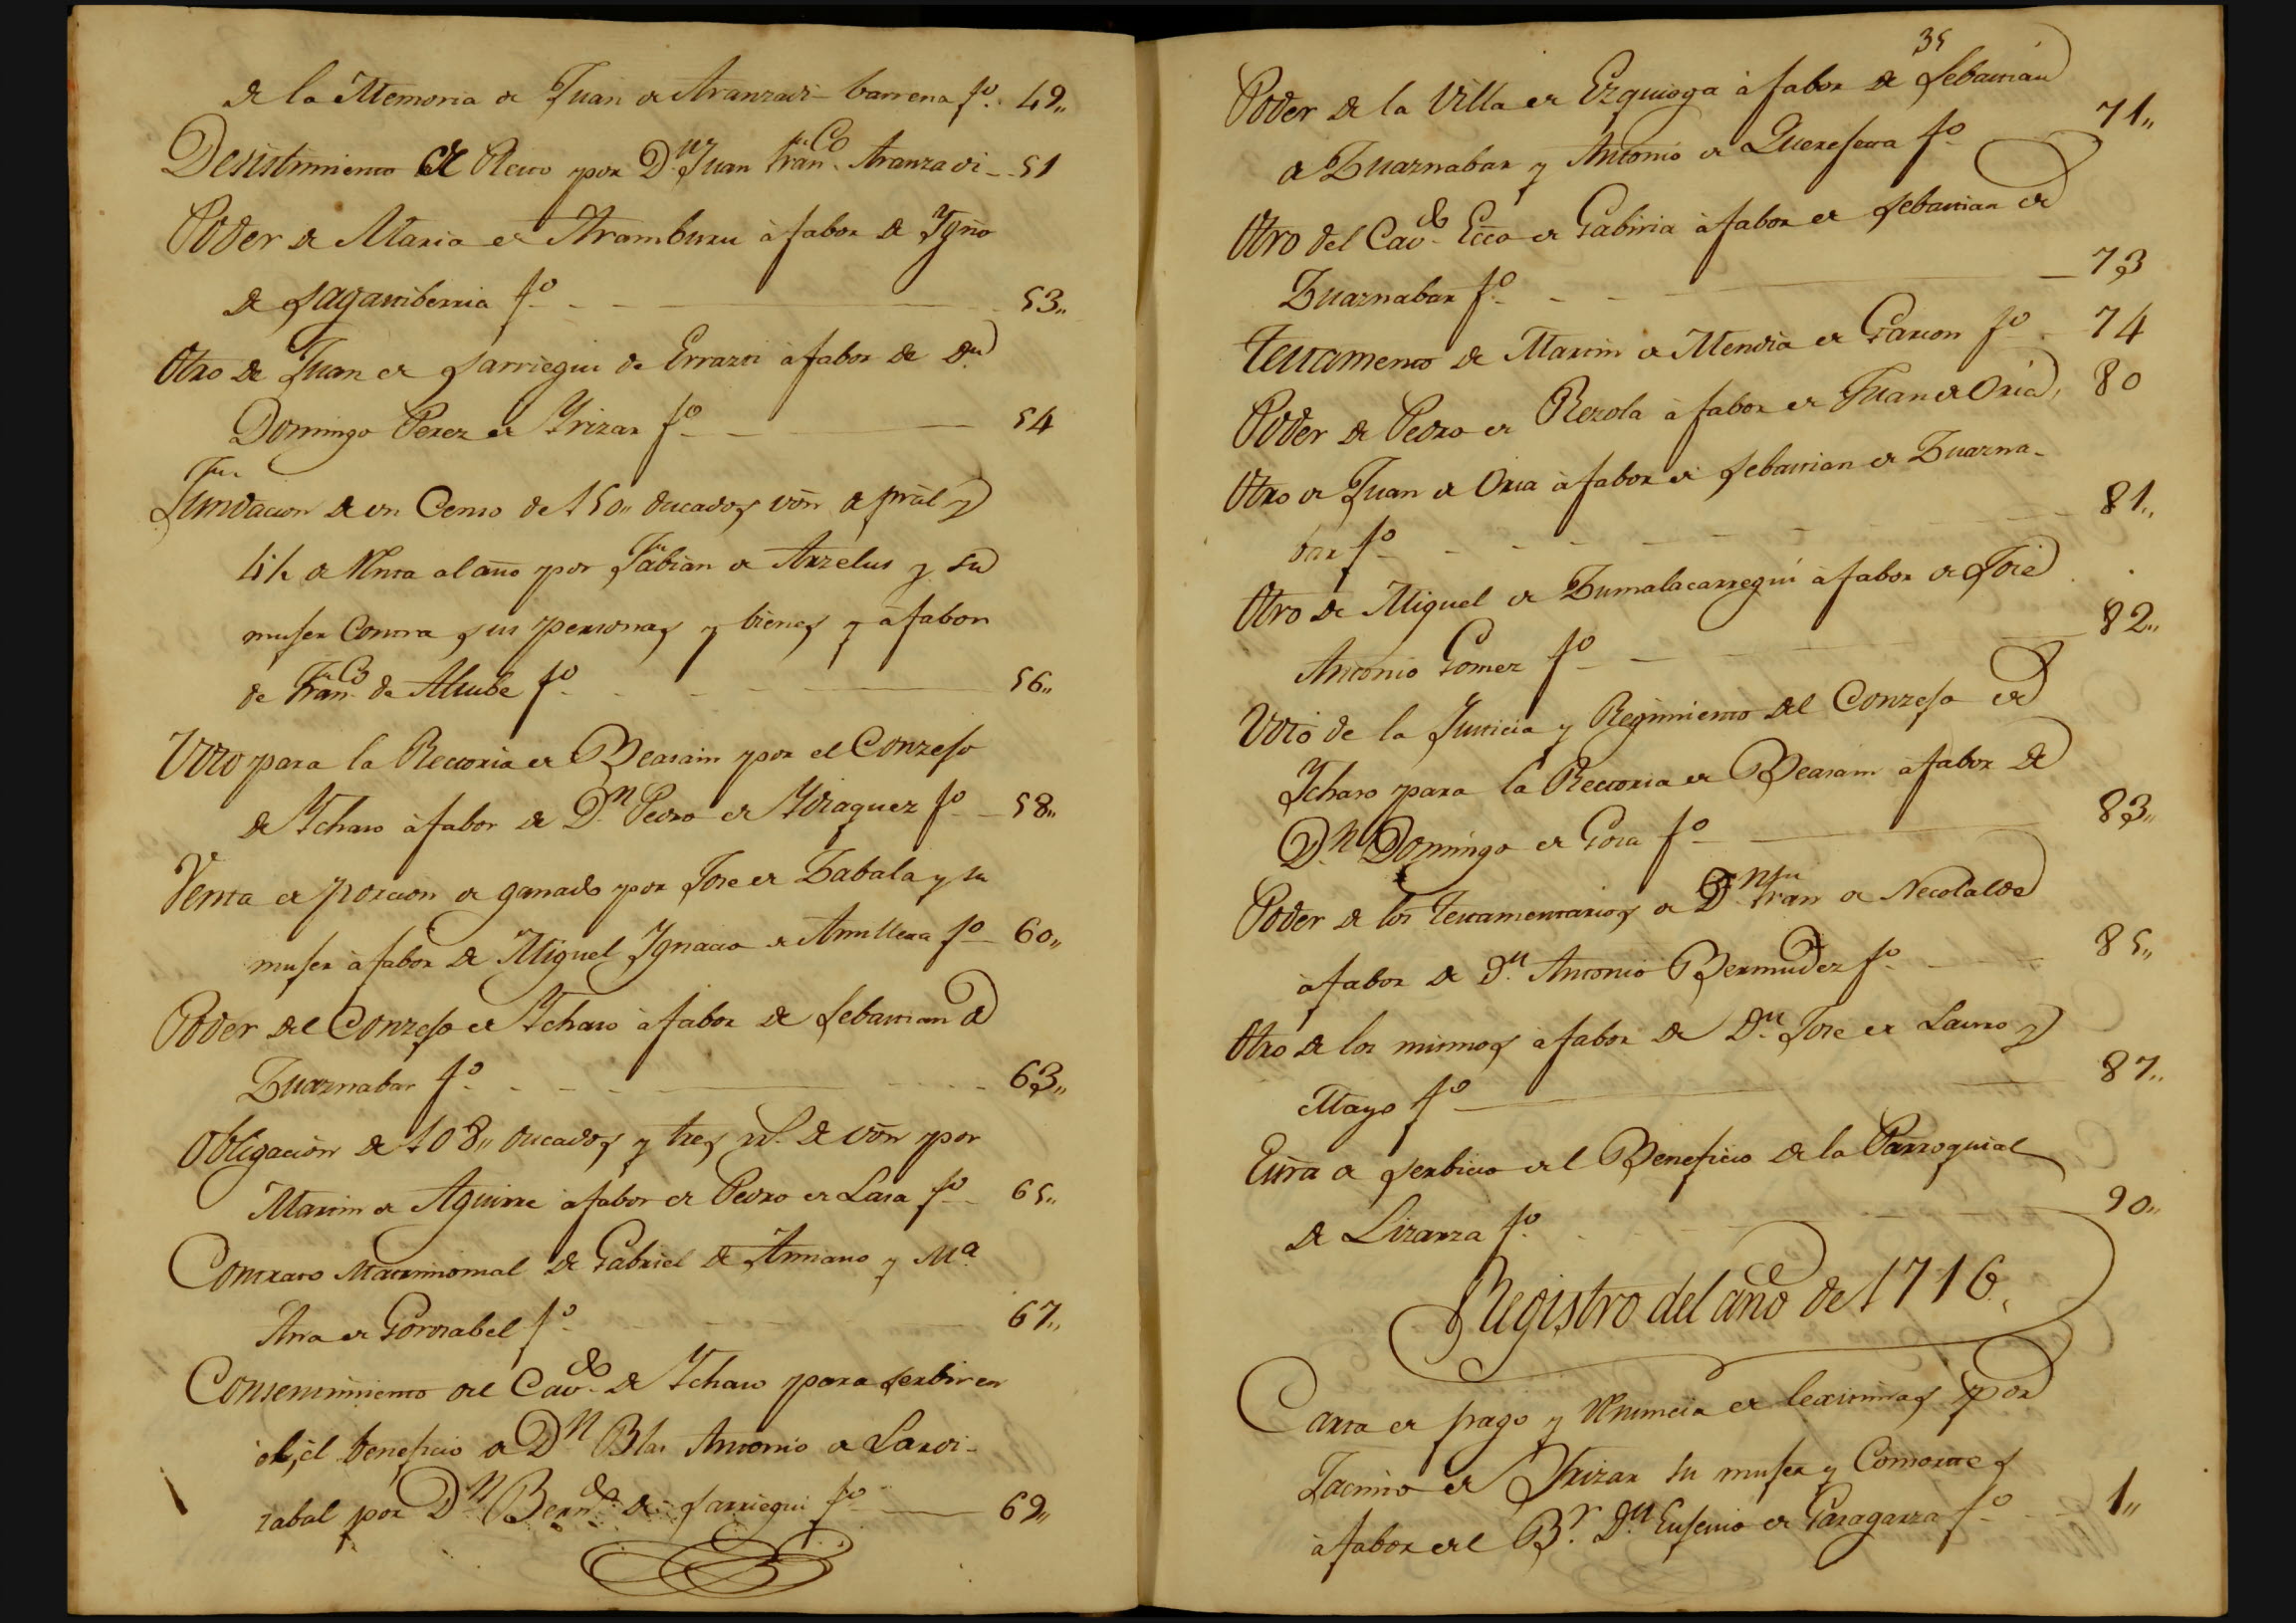 de la Memoria de Juan de Aranzadi barrena fº. 49,,
Desistimiento de Pleito por Dn Juan Franco. Aranzadi - 51
Poder de Maria de Aramburu à fabor de Ygnº
de Sagastiberria fº - - 53,,
Otro de Juan de Sarriegui de Errazti à fabor de Dn.
Domingo Perez de Yrizar fº - 54
Fundacion de un Censo de 150,, ducados vôn de prâl y
de Renta al año por Fabian de Arzelus y su
muger Contra sus personas y bienes y à fabor
de Franco de Alsube fº - - 56,,
Voto para la Rectoria de Beasain por el Conzejo
de Ychaso à fabor de Dn. Pedro de Ydiaquez fº - 58,,
Venta de porcion de ganado por Jose de Zabala y su
muger à fabor de Miguel Ygnacio de Amilleta fº - 60,,
Poder del Conzejo de Ychaso à fabor de Sebastian de
Zuaznabar fº - - 63,,
Obligaciòn de 108,, ducados y tres rrs. de vôn por
Martin de Aguirre à fabor de Pedro de Lasa fº - 65,,
Contrato Matrimonial de Gabriel de Armano y Ma.
Ana de Gorosabel fº - 67,,
Consentimiento del Cavdo. de Ychaso para serbir en
el, el beneficio a Dn Blas Antonio de Lardi-
zabal por Dn Berndo. de Sarriegui fº - 69,,
35
Poder de la Villa de Ezquioga à fabor de Sebastian
de Zuaznabar y Antonio de Querejeta fº 71,,
Otro del Cavdo. Ecco de Gabiria à fabor de Sebastian de
Zuaznabar fº - - 73
Testamento de Martin de Mendia de Garion fº - 74
Poder de Pedro de Rezola à fabor de Juan de Oria, 80
Otro de Juan de Oria à fabor de Sebastian de Zuazna-
bar fº - - 81,,
Otro de Miguel de Zumalacarregui à fabor de José
Antonio Gomez fº - 82,,
Voto de la Justicia y Regimiento del Conzejo de
Ychaso para la Rectoria de Beasain à fabor de
Dn. Domingo de Goia fº - 83,,
Poder de los testamentarios de Dn Fran de Necolalde
à fabor de Dn. Antonio Bermudez fº - 85,,
Otro de los mismos à fabor de Dn. Jose de Lasno y
Mayo fº - 87,,
Escra de serbicio del Beneficio de la Parroquial
de Lizarza fº - 90,,
Registro del año de 1716.
Carta de pago y Renuncia de lexitimas por
Jacinto de Yrizar su muger y Consortes
à fabor del Br. Dn Eusenio de Garagarza fº - 1,,